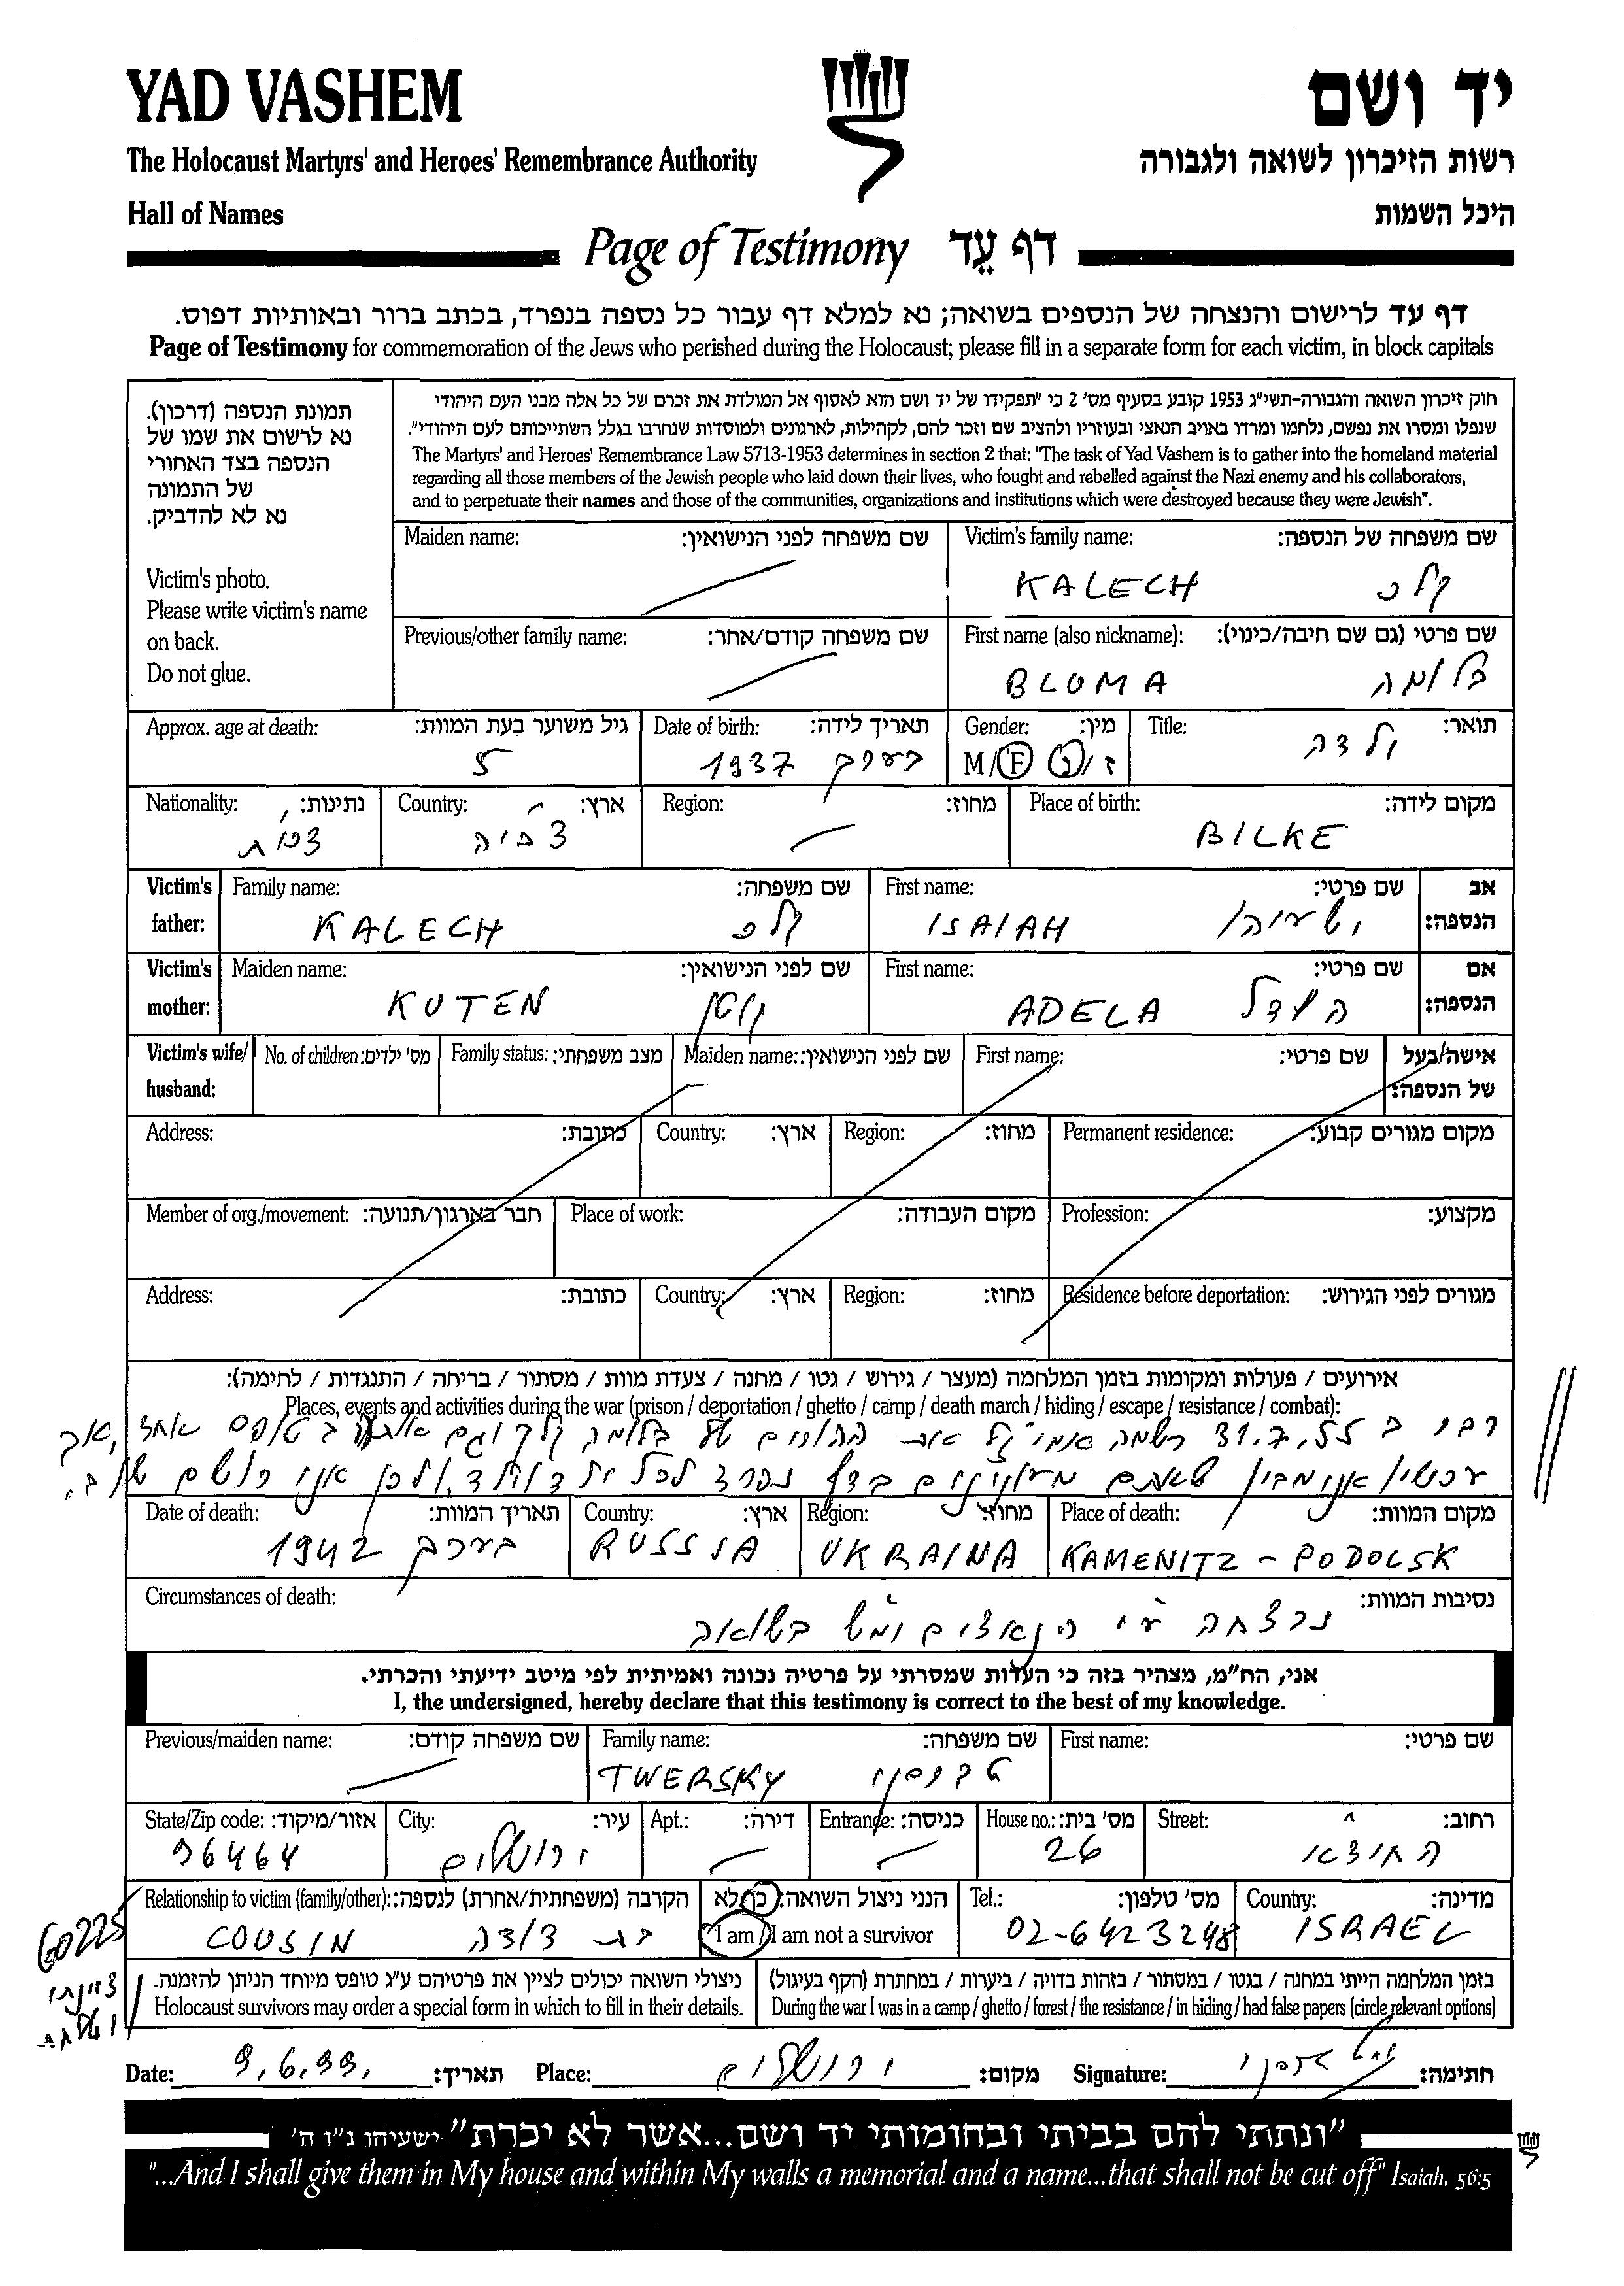 YAD VASHEM
יד ושם
The Holocaust Martyrs' and Heroes' Remembrance Authority
רשות הזיכרון לשואה ולגבורה
Hall of Names
היכל השמות
Page of Testimony דף עֵד
דף עד לרישום והנצחה של הנספים בשואה; נא למלא דף עבור כל נספה בנפרד, בכתב ברור ובאותיות דפוס.
Page of Testimony for commemoration of the Jews who perished during the Holocaust; please fill in a separate form for each victim, in block capitals
תמונת הנספה (דרכון).
נא לרשום את שמו של
הנספה בצד האחורי
של התמונה
נא לא להדביק.
Victim's photo.
Please write victim's name
on back.
Do not glue.
חוק זיכרון השואה והגבורה-תשי"ג 1953 קובע בסעיף מס' 2 כי "תפקידו של יד ושם הוא לאסוף אל המולדת את זכרם של כל אלה מבני העם היהודי
שנפלו ומסרו את נפשם, נלחמו ומרדו באויב הנאצי ובעוזריו ולהציב שם וזכר להם, לקהילות, לארגונים ולמוסדות שנחרבו בגלל השתייכותם לעם היהודי".
The Martyrs' and Heroes' Remembrance Law 5713-1953 determines in section 2 that: "The task of Yad Vashem is to gather into the homeland material
regarding all those members of the Jewish people who laid down their lives, who fought and rebelled against the Nazi enemy and his collaborators,
and to perpetuate their names and those of the communities, organizations and institutions which were destroyed because they were Jewish".
Maiden name: שם משפחה לפני הנישואין: Victim's family name: שם משפחה של הנספה:
KALECH קלכ
Previous/other family name: שם משפחה קודם/אחר: First name (also nickname): שם פרטי (גם שם חיבה/כינוי):
BLUMA בלומה
Approx. age at death: גיל משוער בעת המוות: Date of birth: תאריך לידה: Gender: מין: Title: תואר:
5 1937 בערך M/F ז/נ ילדה
Nationality: נתינות: Country: ארץ: Region: מחוז: Place of birth: מקום לידה:
צ'כית צ'כיה BILKE
Victim's father: Family name: שם משפחה: First name: שם פרטי: אב הנספה:
KALECH קלכ ISAIAH ישעיהו
Victim's mother: Maiden name: שם לפני הנישואין: First name: שם פרטי: אם הנספה:
KUTEN קוטן ADELA הודל
Victim's wife/husband: No. of children: מס' ילדים: Family status: מצב משפחתי: Maiden name: שם לפני הנישואין: First name: שם פרטי: אישה/בעל של הנספה:
Address: כתובת: Country: ארץ: Region: מחוז: Permanent residence: מקום מגורים קבוע:
Member of org./movement: חבר בארגון/תנועה: Place of work: מקום העבודה: Profession: מקצוע:
Address: כתובת: Country: ארץ: Region: מחוז: Residence before deportation: מגורים לפני הגירוש:
אירועים / פעולות ומקומות בזמן המלחמה (מעצר / גירוש / גטו / מחנה / צעדת מוות / מסתור / בריחה / התנגדות / לחימה):
Places, events and activities during the war (prison / deportation / ghetto / camp / death march / hiding / escape / resistance / combat):
ב 31.7.55 רשמה אמי ז"ל את של בלומה קלכ וגם בטופס אחד, אך
עכשיו אני מבין שאתם מעונינים בדף נפרד לכל ילד, לכן אני רושם שוב.
Date of death: תאריך המוות: Country: ארץ: Region: מחוז: Place of death: מקום המוות:
1942 בערך RUSSIA UKRAINA KAMENITZ - PODOLSK
Circumstances of death: נסיבות המוות:
נרצחה ע"י הנאצים ימ"ש בשואה
אני, הח"מ, מצהיר בזה כי העדות שמסרתי על פרטיה נכונה ואמיתית לפי מיטב ידיעתי והכרתי.
I, the undersigned, hereby declare that this testimony is correct to the best of my knowledge.
Previous/maiden name: שם משפחה קודם: Family name: שם משפחה: First name: שם פרטי:
TWERSKY טברסקי
State/Zip code: אזור/מיקוד: City: עיר: Apt.: דירה: Entrance: כניסה: House no.: מס' בית: Street: רחוב:
96464 ירושלים 26
Relationship to victim (family/other): הקרבה (משפחתית/אחרת) לנספה: הנני ניצול השואה: כן/לא Tel.: מס' טלפון: Country: מדינה:
COUSIN בת דודה I am / I am not a survivor 02-6423248 ISRAEL
60225
ניצולי השואה יכולים לציין את פרטיהם ע"ג טופס מיוחד הניתן להזמנה.
Holocaust survivors may order a special form in which to fill in their details.
בזמן המלחמה הייתי במחנה / בגטו / במסתור / בזהות בדויה / ביערות / במחתרת (הקף בעיגול)
During the war I was in a camp / ghetto / forest / the resistance / in hiding / had false papers (circle relevant options)
Date: 9.6.99 תאריך: Place: ירושלים מקום: Signature: חתימה:
"ונתתי להם בביתי ובחומותי יד ושם...אשר לא יכרת" ישעיהו נ"ו ה'
"...And I shall give them in My house and within My walls a memorial and a name...that shall not be cut off" Isaiah, 56:5